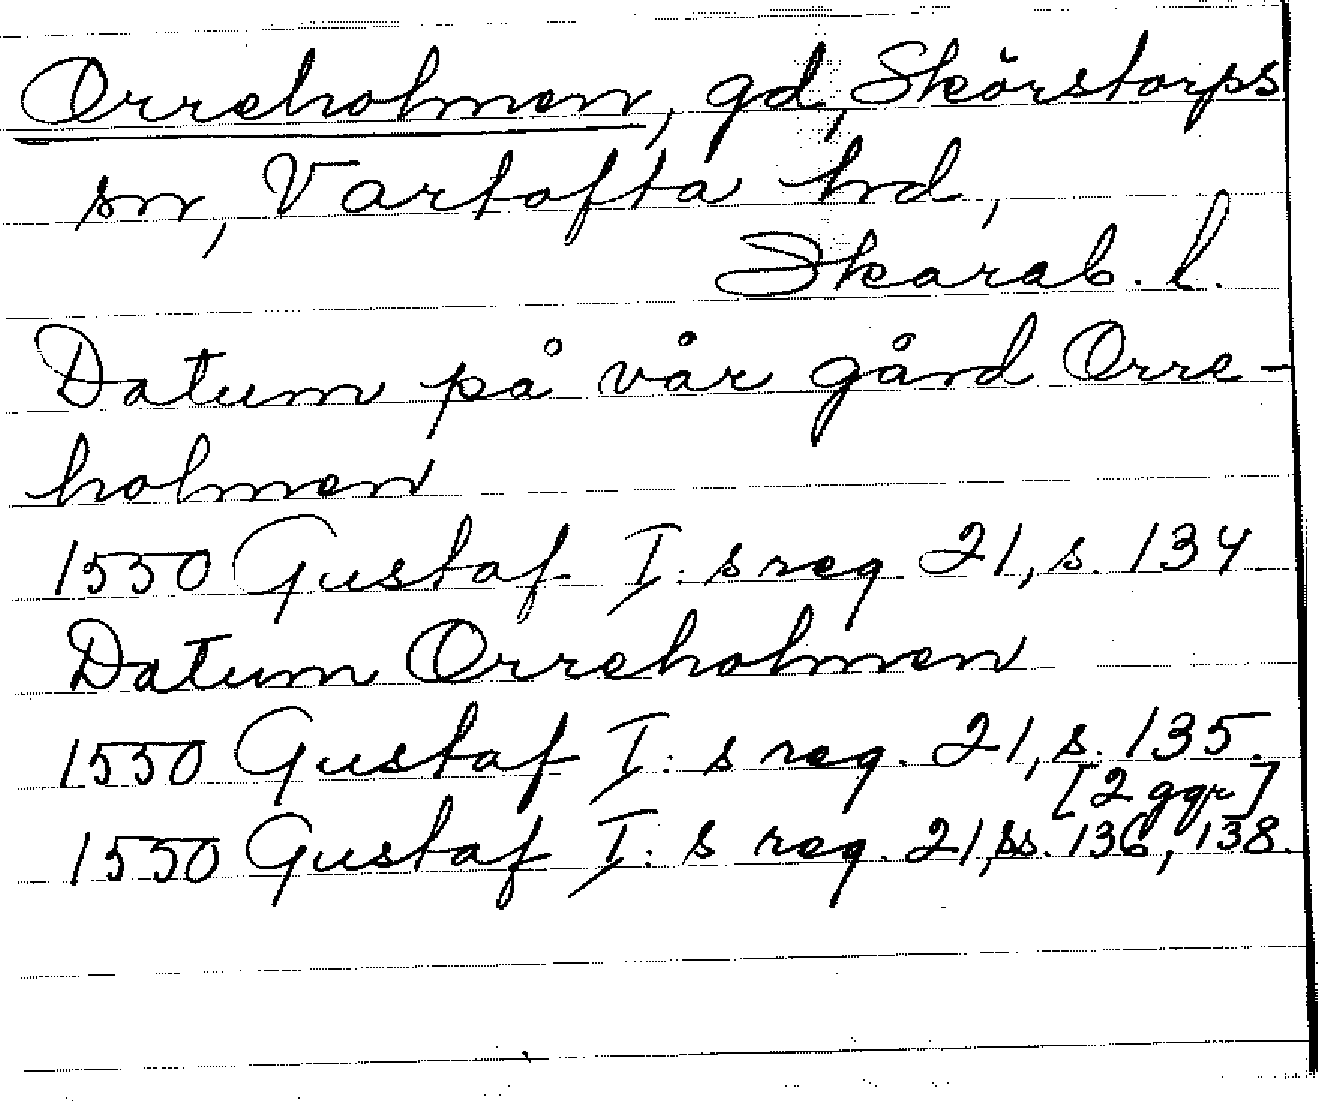 Orreholmen, gd, Skörstorps
sn, Vartofta hd,
Skarab. l.
Datum på vår gård Orre-
holmen
1550 Gustaf I: s reg. 21, s. 134
Datum Orreholmen
1550 Gustaf I: s reg. 21, s. 135.
[2 ggr]
1550 Gustaf I: s reg. 21, ss. 136, 138.